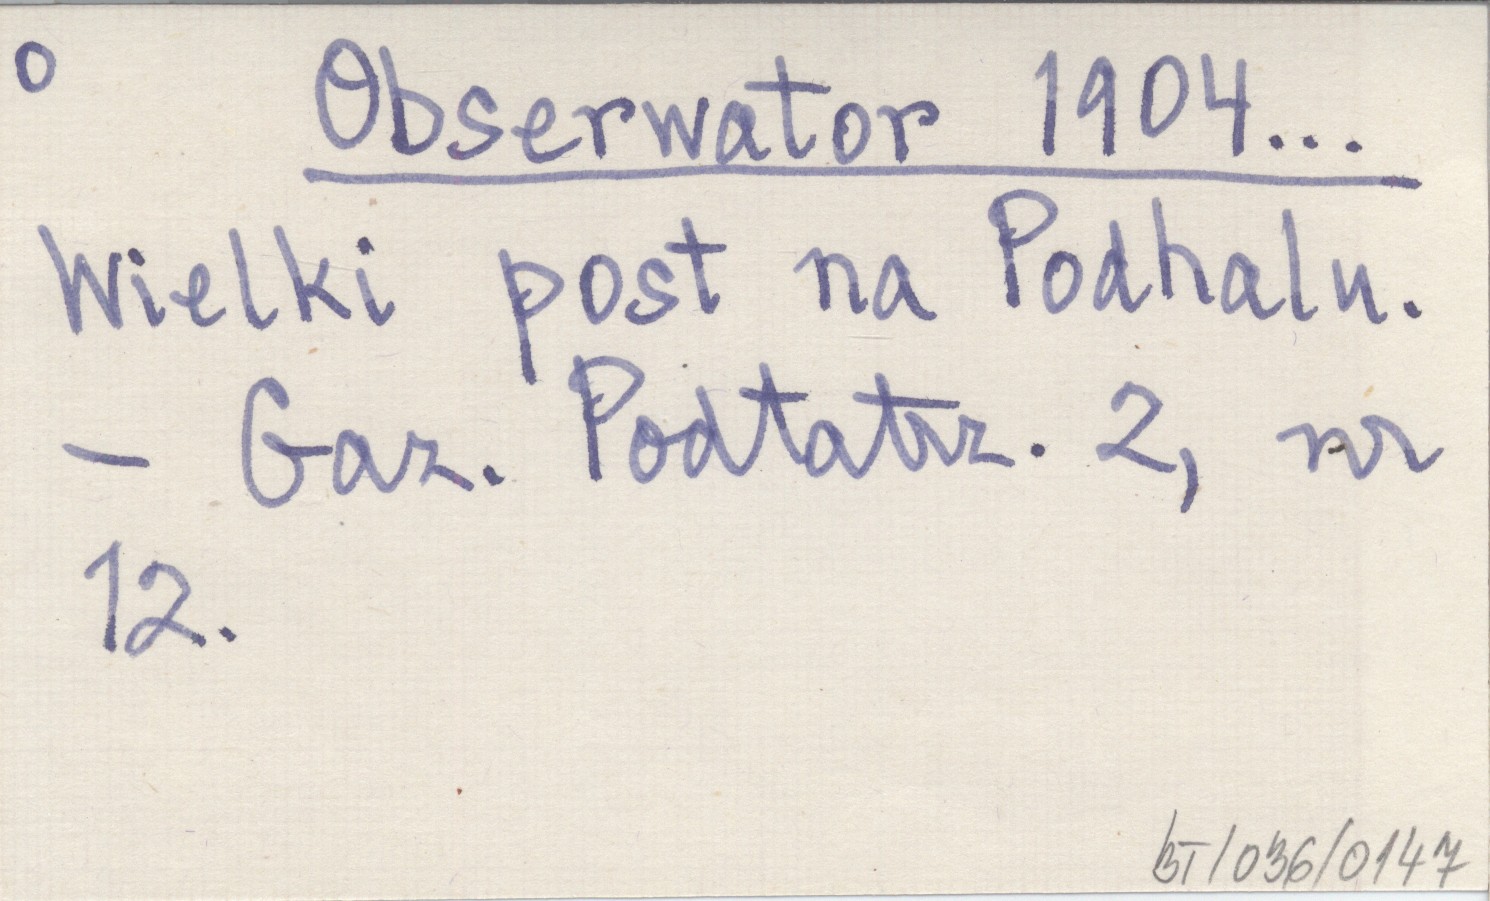 o Obserwator 1904...
Wielki post na Podhalu.
- Gaz. Podtatrz. 2, nr
12.
BT/036/0147